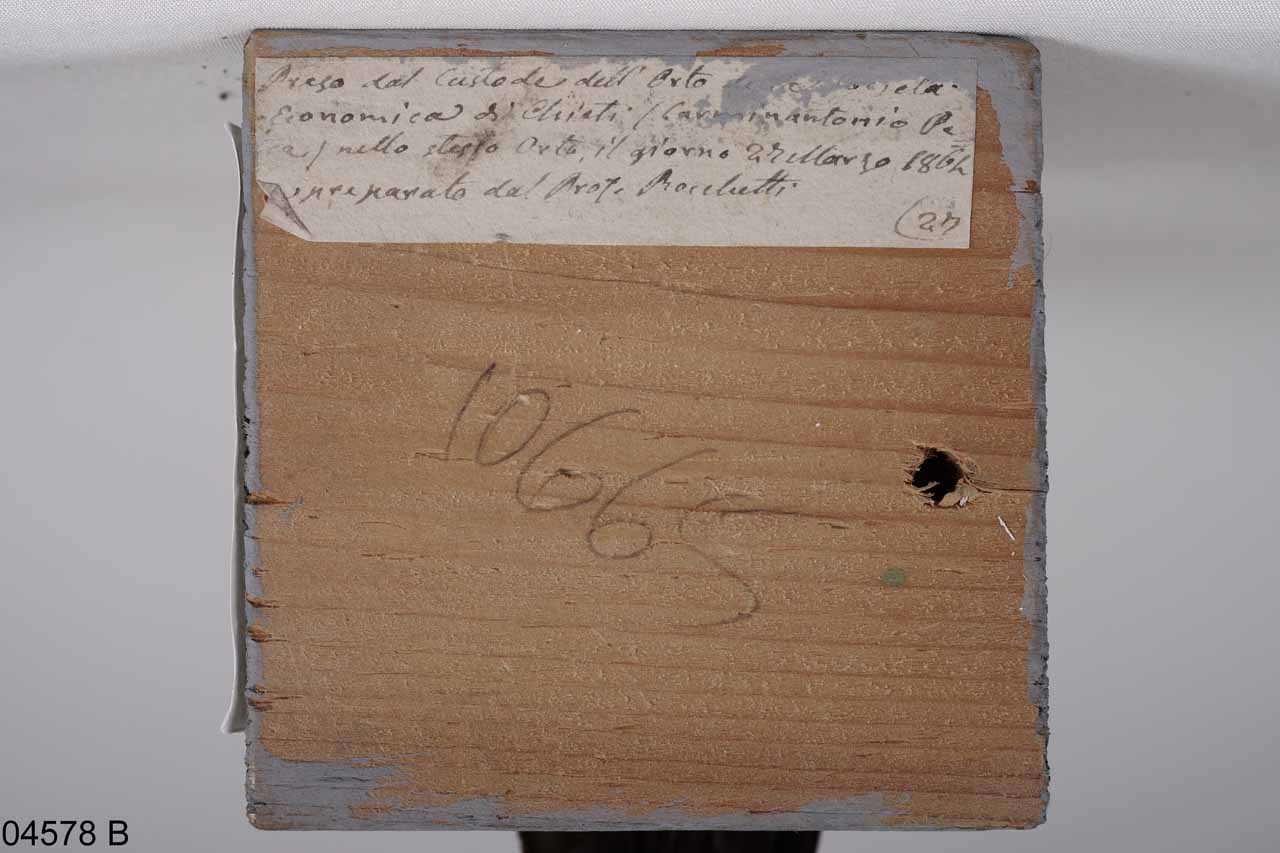 Preso dal Custode dell' Orto
Economica di Chieti (Carminantonio Pe=
ca) nello stesso Orto, il giorno 27 Marzo 1864
preparato dal Prof. Rocchetti
(27
10665
04578 B